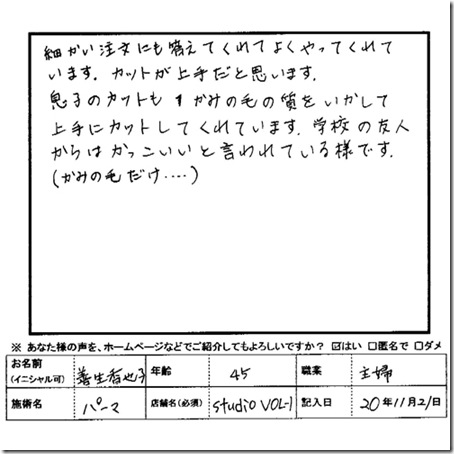 細かい注文にも答えてくれてよくやってくれて
います。カットが上手だと思います。
息子のカットも、かみの毛の質をいかして
上手にカットしてくれています。学校の友人
からはかっこいいと言われている様です。
(かみの毛だけ‥‥)
※ あなた様の声を、ホームページなどでご紹介してもよろしいですか? ☑はい □匿名で □ダメ
お名前 (イニシャル可) 善生香也子 年齢 45 職業 主婦
施術名 パーマ 店舗名(必須) studio VOL-1 記入日 20年11月21日